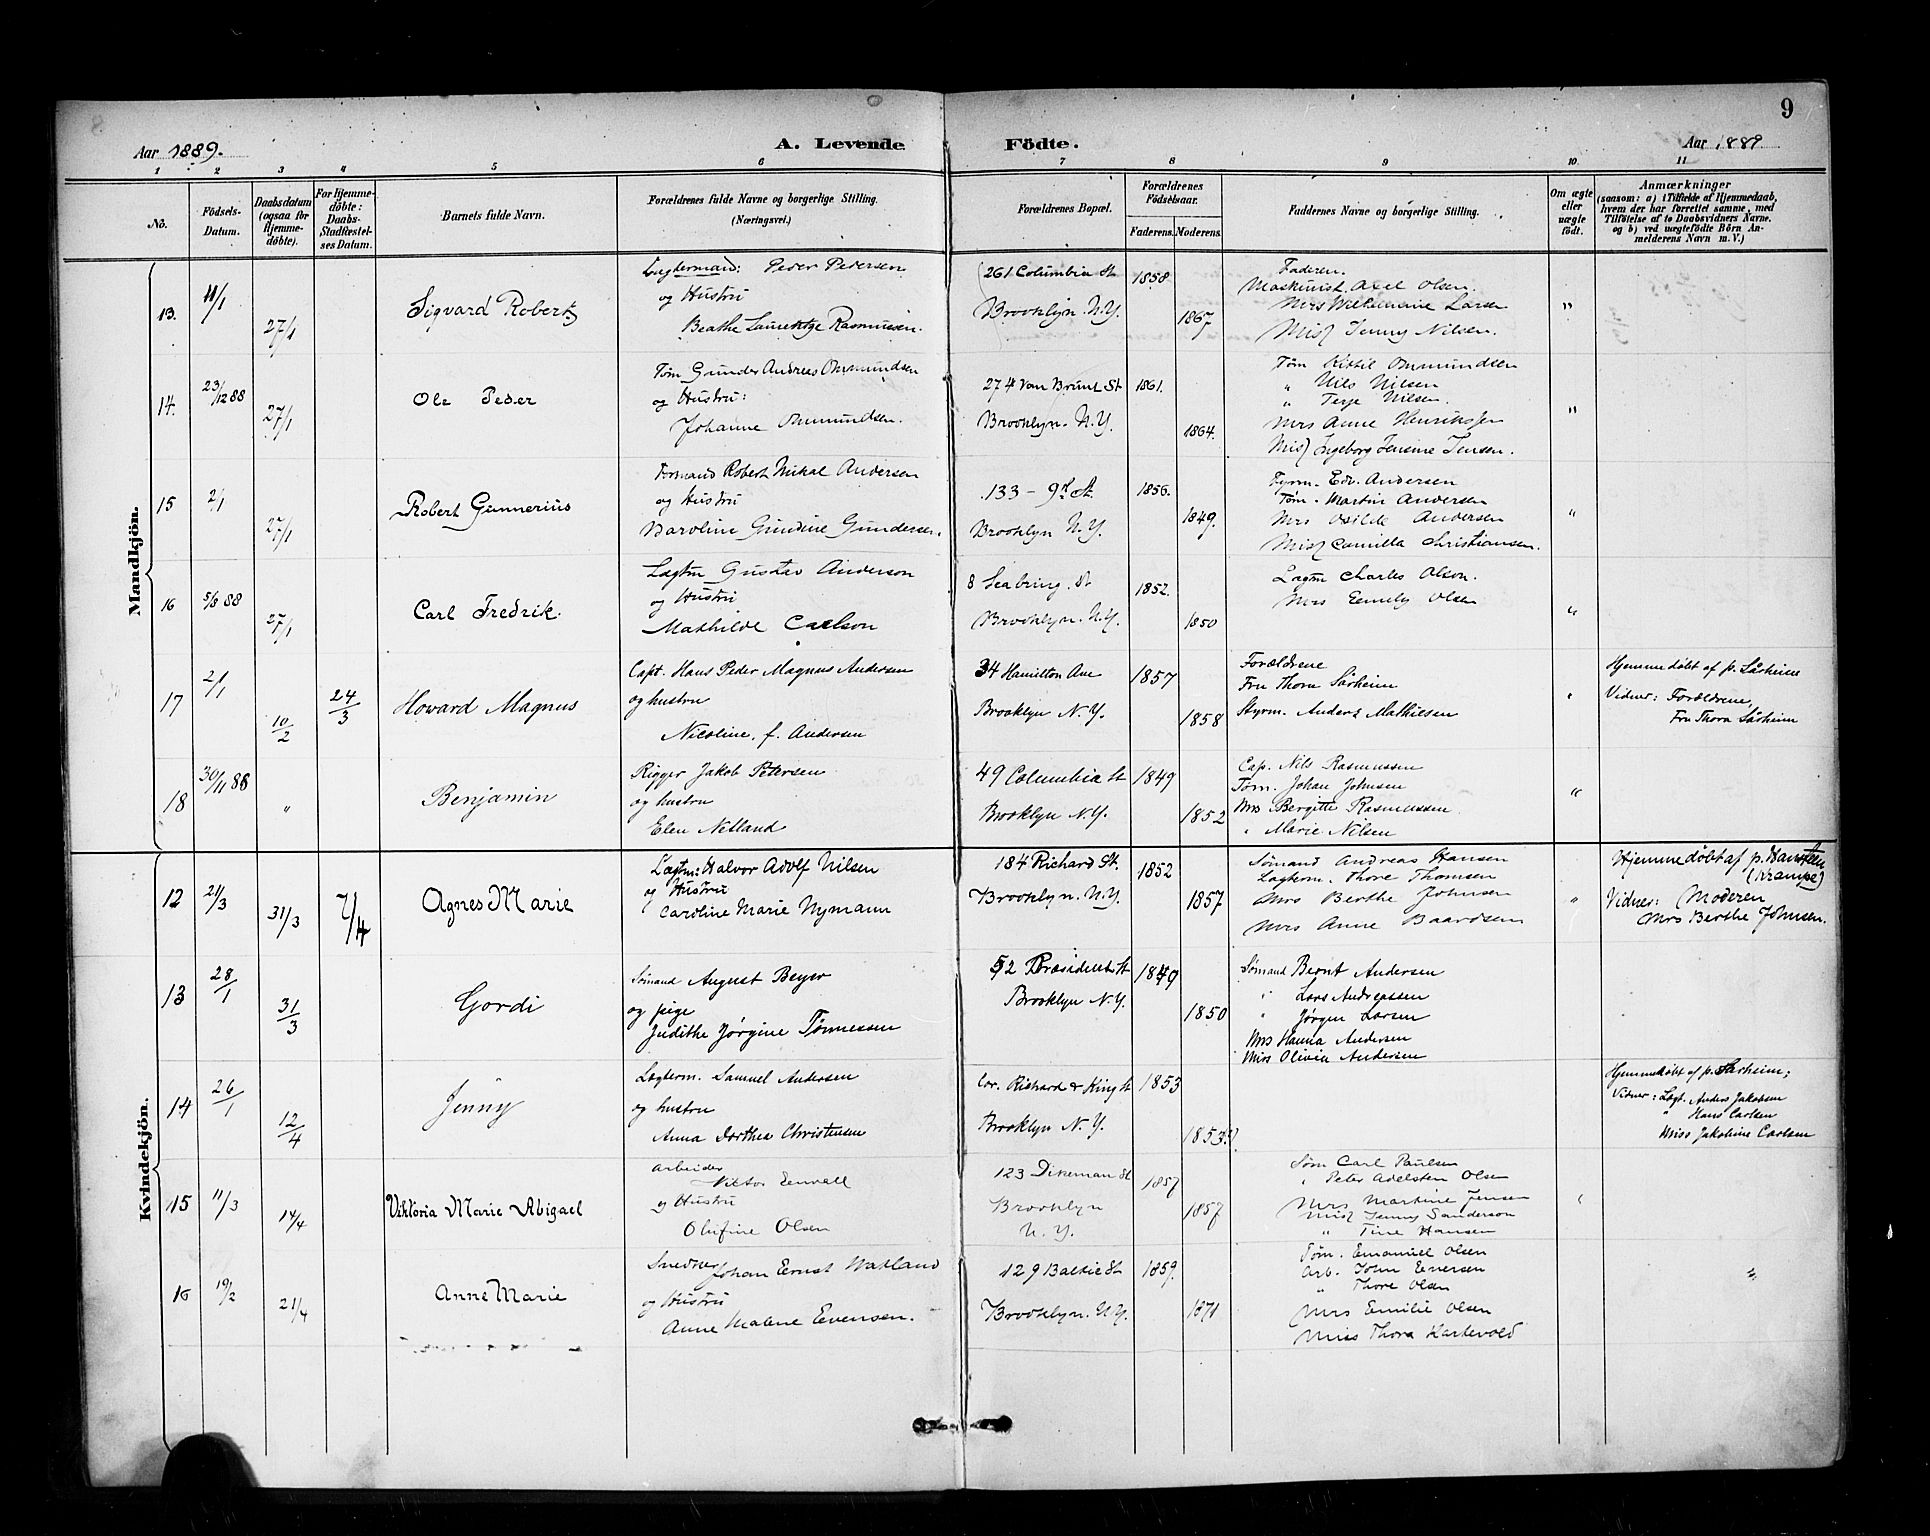 9
Aar 1889. A. Levende Födte. Aar 1889
1 2 3 4 5 6 7 8 9 10 11
No.
Födsels-Datum.
Daabsdatum (ogsaa for Hjemme-döbte).
For Hjemme-döbte: Daabs-Stadfæstel-ses Datum.
Barnets fulde Navn.
Forældrenes fulde Navne og borgerlige Stilling.
(Næringsvei.)
Forældrenes Bopæl.
Forældrenes Födselsaar.
Faderens. Moderens.
Faddernes Navne og borgerlige Stilling.
Om ægte eller uægte födt.
Anmærkninger
(saasom: a) i Tilfælde af Hjemmedaab,
hvem der har forrettet samme, med
Tilföielse af to Daabsvidners Navne.
og b) ved uægtefödte Börn An-
melderens Navn m. V.)
Mandkjön.
13. 11/1 27/1
Sigvard Robert
Lugterman: Peder Pedersen
og Hustru
Beathe Rasmussen.
261 Columbia St
Brooklyn. N.Y.
1858
1867
Faderen.
Maskinist. Axel Olsen.
Mrs Wilhelmine Larsen
Miss Jenny Nilsen.
"
14. 23/12 88 27/1
Ole Peder
Tøm Gunder Andreas Ommundsen
og Hustru:
Johanne Ommundsen.
274 Van Brunt St
Brooklyn. N.Y.
1861.
1864.
Tøm Kittil Ommundsen
" Nils Nilsen
" Terje Nilsen.
Mrs Anne Henriksen
Miss Ingeborg Jensine Jensen.
"
15 2/1 27/1
Robert Gunnerius
Formand Robert Mikal Andersen
og Hustru
Karoline Gundine Gundersen.
133 - 9th St
Brooklyn N.Y.
1856.
1849.
Fyrm. Edv. Andersen
Tøm. Martin Andersen
Mrs Osilde Andersen
Miss Camilla Christiansen.
"
16 5/8 88 27/1
Carl Fredrik
Lægtm Gustav Anderson
og Hustru
Mathilde Carlson
8 Seabring. St
Brooklyn. N.Y.
1852.
1850
Lægtm Charles Olson.
Mrs Olsen
"
17 2/1 10/2 24/3
Howard Magnus
Capt. Hans Peder Magnus Andersen
og hustru
Nicoline, f. Andersen
34 Hamilton Ave
Brooklyn N.Y.
1857
1858
Forældrene
Fru Thora Sårheim
Styrm. Anders Mathisen
"
Hjemmedøbt af p. Sårheim
Vidner: Forældrene,
Fru Thora Sårheim
18 30/11 88 "
Benjamin
Rigger Jakob Petersen
og hustru
Elen Netland
49 Columbia St
Brooklyn N.Y.
1849
1852
Cap. Nils Rasmussen
Tøm. Johan Johnsen
Mrs Bergitte Rasmussen
" Marie Nilsen
"
Kvindekjön.
12 21/3 31/3 7/4
Agnes Marie
Lægtm: Halvor Adolf Nilsen
og Hustru
Caroline Marie Nymann
184 Richard St.
Brooklyn. N.Y.
1852
1857
Sømand Andreas Hansen
Lægterm. Thore Thomsen
Mrs Berthe Johnsen
Mrs Anne Baardsen
"
Hjemmedøbt af p. Hansteen
(Krampe)
Vidner: Moderen
Mrs Berthe Johnsen.
13 28/1 31/3
Gordi
Sømand August Beyer
og pige
Judithe Jørgine Tønnessen
52 President St
Brooklyn N.Y.
1849
1850
Sømand Bernt Andersen
" Lars Andreassen
" Jørgen Larsen
Mrs Hanna Andersen
Miss Olivia Andersen
14 26/1 12/4
Jenny
Lægterm. Samuel Andersen
og hustru
Anna Dorthea Christensen
Cor. Richard & King St
Brooklyn N.Y.
1853
1853?)
Hjemmedøbt af p. Sårheim;
Vidner: Lægt. Anders Jakobsen
" Hans Carlsen
Miss Jakobine Carlsen
15 11/3 14/4
Viktoria Marie Abigael
Arbeider
Viktor Eenvall
og Hustru
Olufine Olsen
123 Dikeman St
Brooklyn
N.Y.
1857
1857
Søm Carl Paulsen
" Peter Adelsten Olsen
Mrs Martine Jensen
Miss Jenny Sanderson
" Tine Hansen
16 19/2 21/4
Anne Marie
Snedker Johan Ernst Watland
og Hustru
Anne Malene Evensen.
129 Baltic St
Brooklyn. N.Y.
1859.
1871
Tøm. Emanuel Olsen
Arb. John Eversen
" Thore Olsen
Mrs Emilie Olsen
Miss Thora Hartevold
"